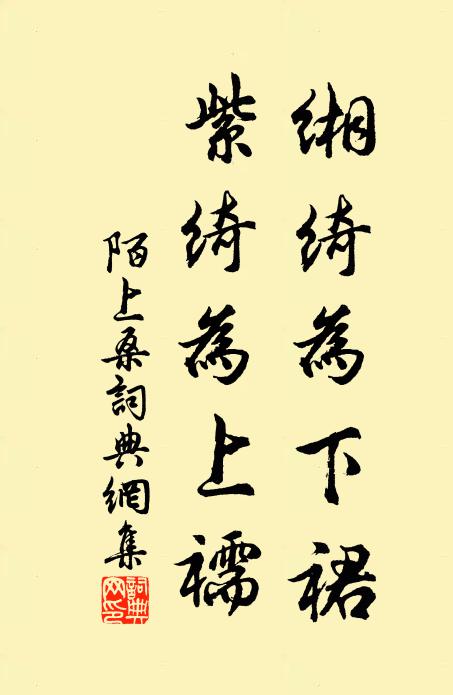 緗綺為下裙
紫綺為上襦
陌上桑詞典網集
詞典网印